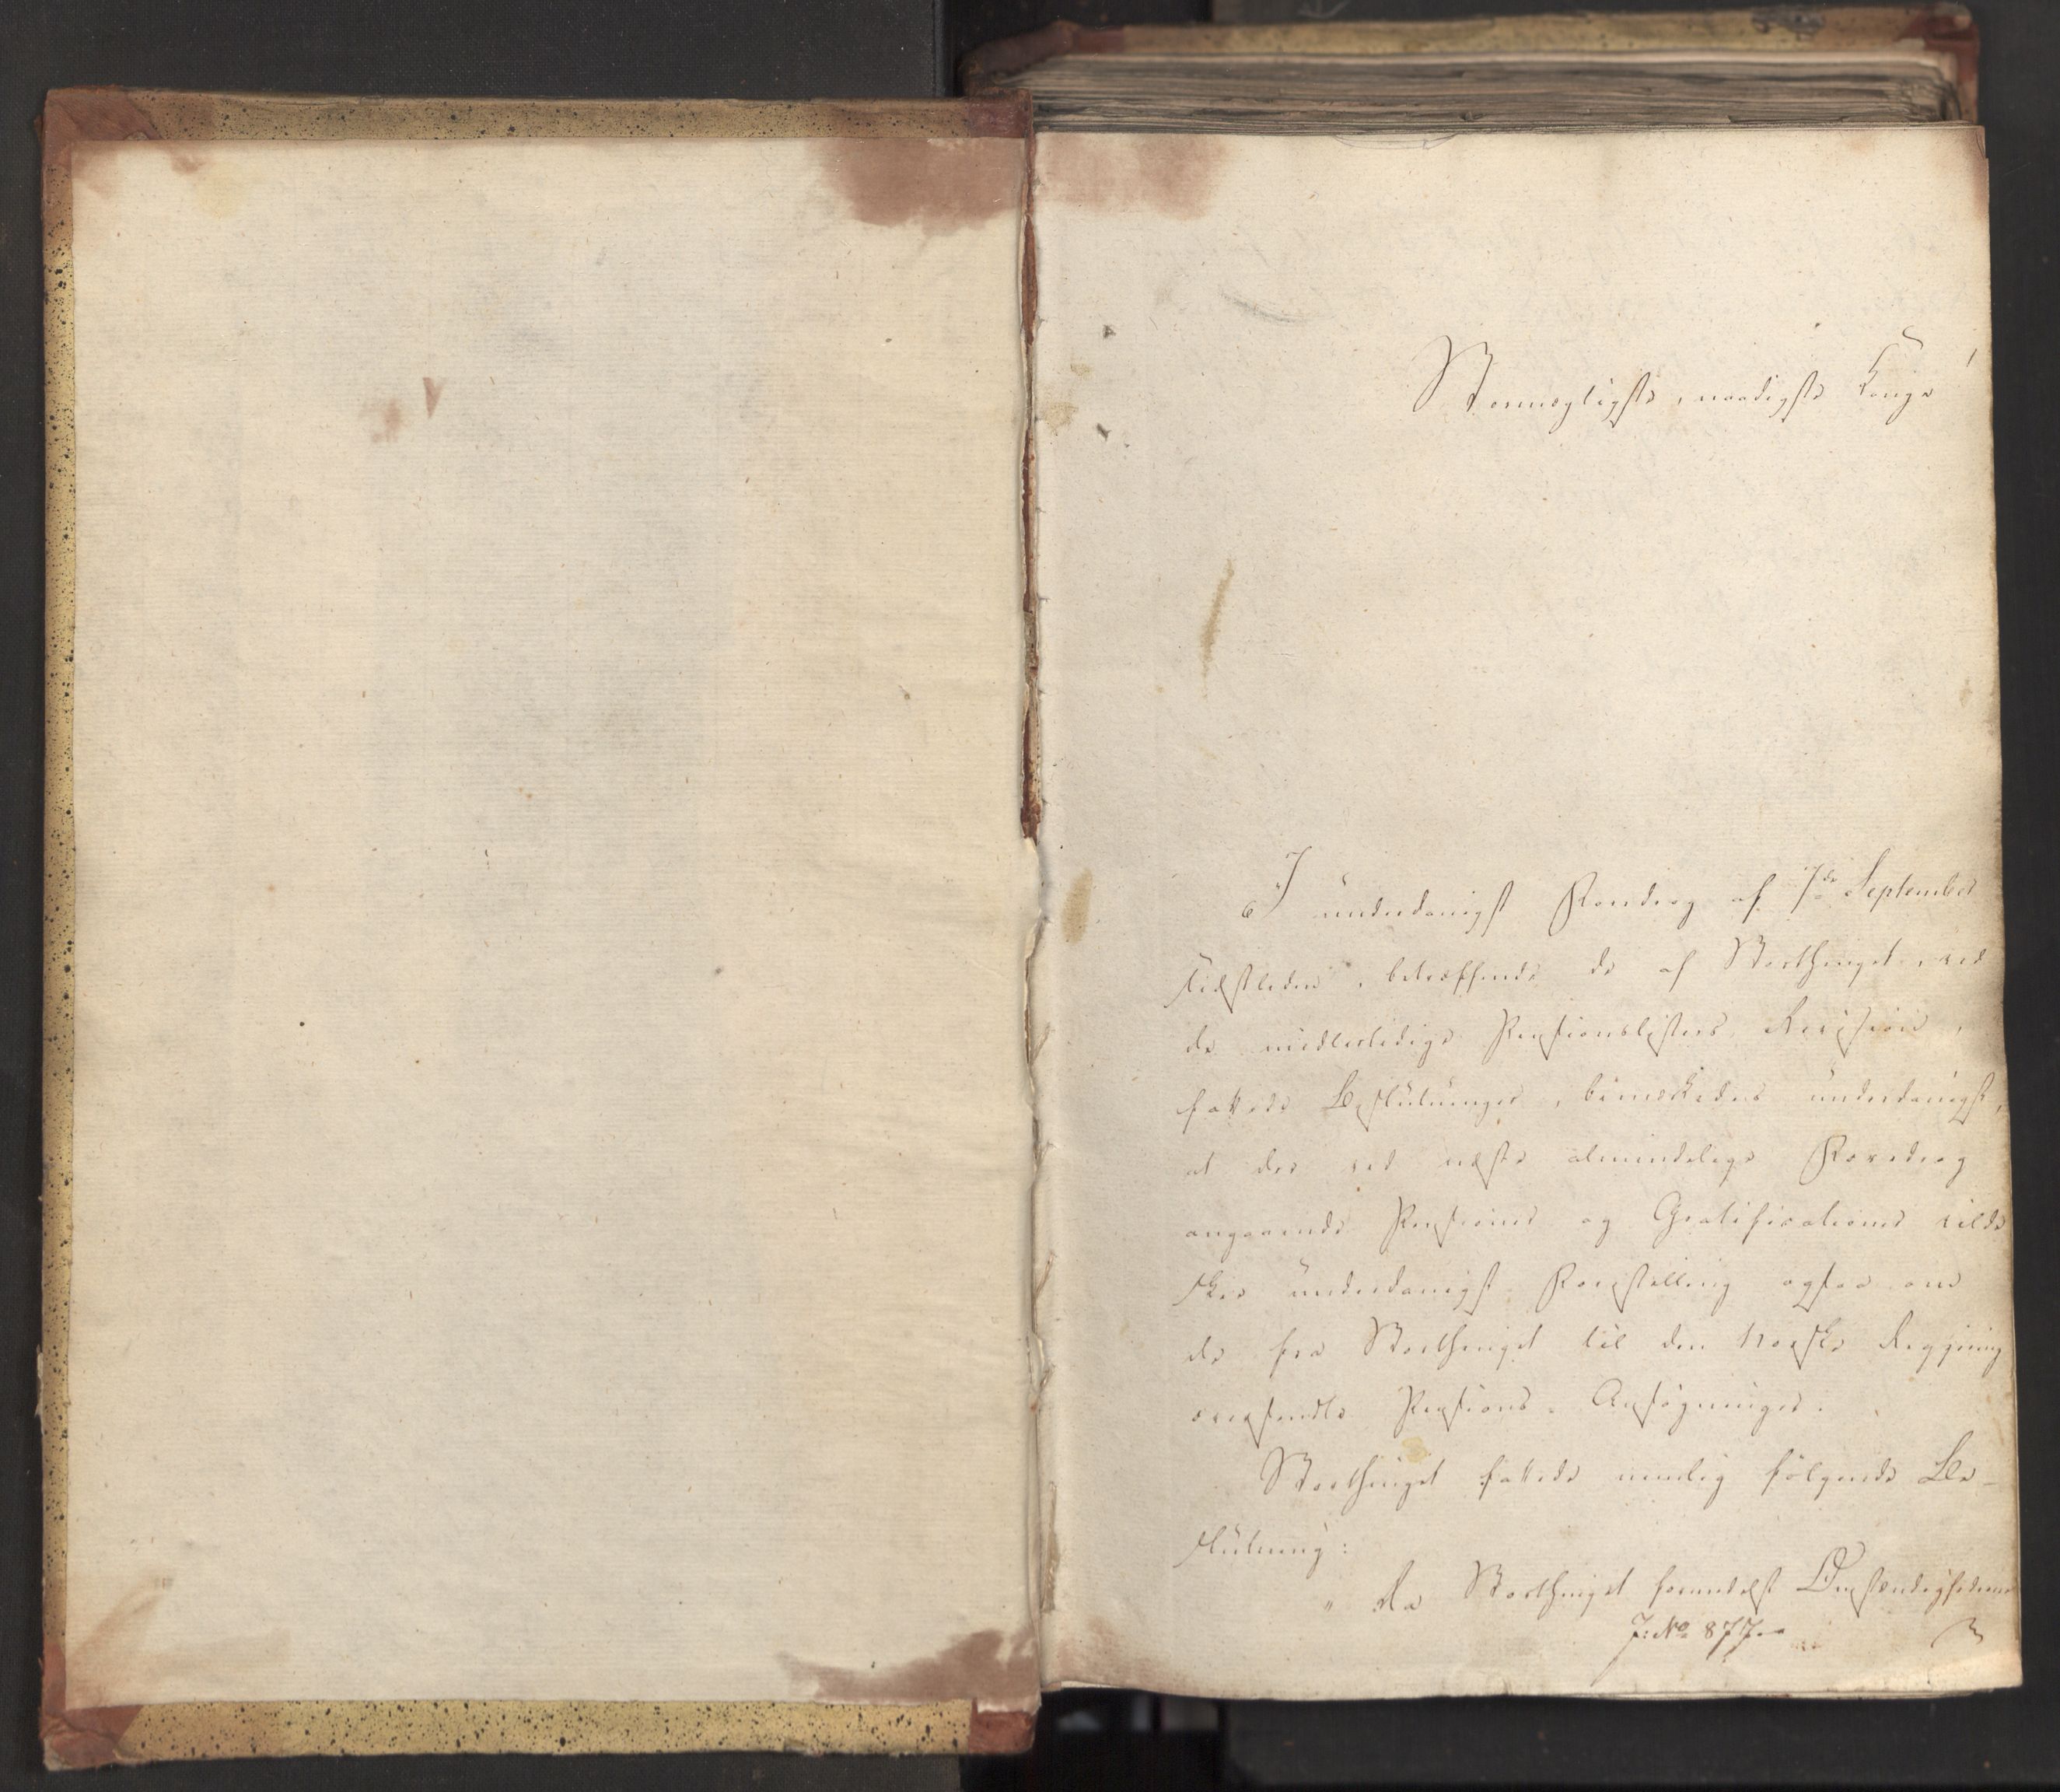 Stormægtigste, naadigste Konge!
I underdanigst Foredrag af 7de September
sidstleden, betræffende de af Storthinget, ved
de midlertidige Pensionslisters Revision,
fattede Beslutninger, bemerkedes underdanigst,
at der ved næste almindelige Foredrag
angaaende Pensioner og Gratificationer vilde
skee underdanigst Forestilling ogsaa om
de fra Storthinget til den Norske Regjering
oversendte Pensions-Ansøgninger.
Storthinget fattede nemlig følgende Be-
slutning:
"Da Storthinget formedelst Omstændighederne
J: No 877